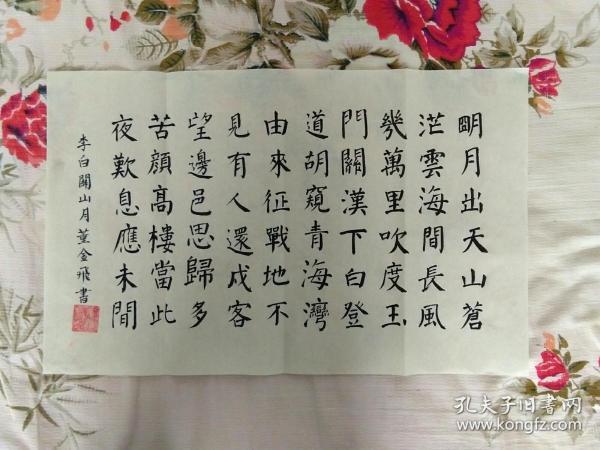 朙月出天山蒼
茫雲海間長風
幾萬里吹度玉
門關漢下白登
道胡窺青海灣
由來征戰地不
見有人還戍客
望邊邑思歸多
苦顏高樓當此
夜歎息應未閒
李白關山月董金飛書
孔夫子旧書网
www.kongfz.com